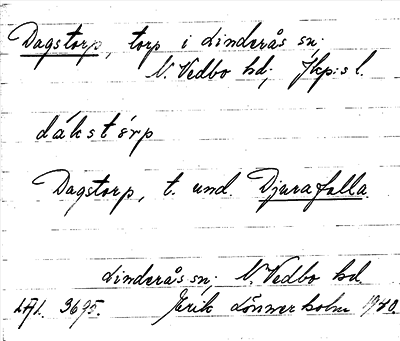 Dagstorp, torp i Linderås sn;
N. Vedbo hd; Jkp:s l.
dákstórp
Dagstorp, t. und. Djurafalla.
Linderås sn; N. Vedbo hd.
LAL. 3695. Erik Lönnerholm 1940.